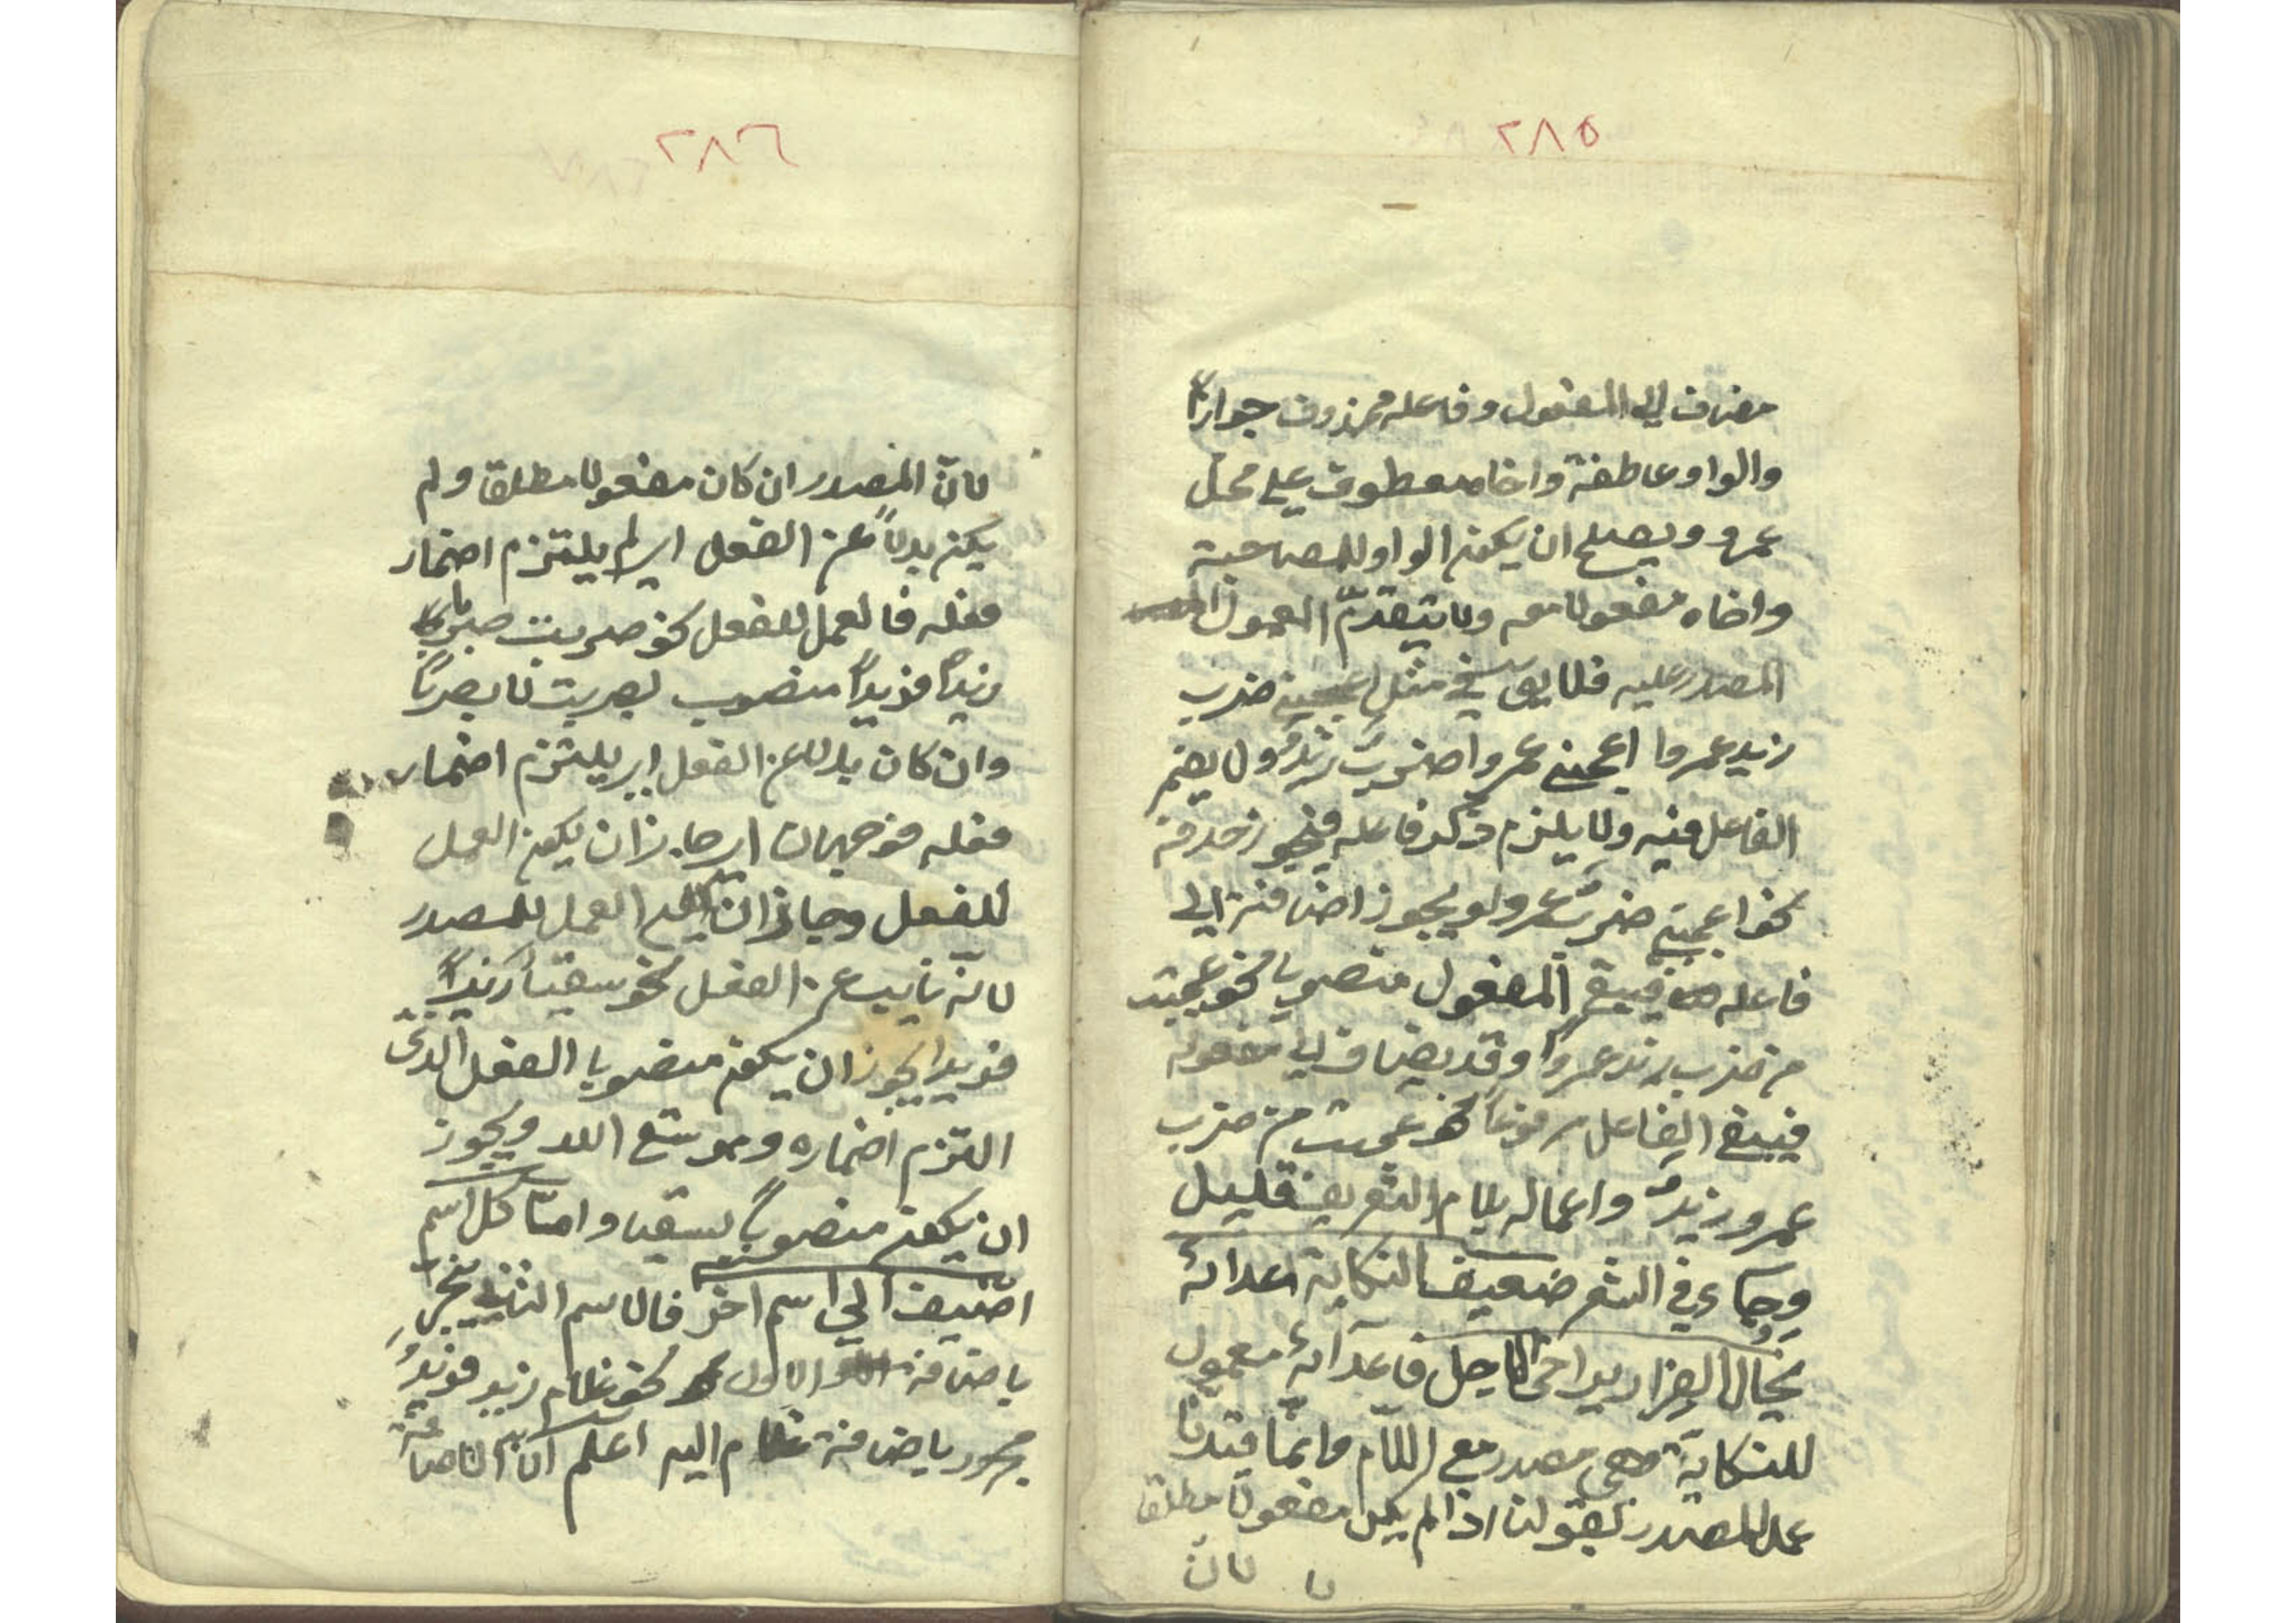 ٢٨٥
مضاف الى المفعول وفاعله محذوف جوازاً
والواو عاطفة واخاه معطوف على محل
عمرو ويصلح ان يكون الواو للمصاحبة
واخاه مفعولا معه ولا يتقدّم المعمول
المصدر عليه فلا يق في مثل اعجبني ضرب
زيد عمروا اعجبني عمروا ضرب زيد ولا يضمر
الفاعل فيه ولا يلزم ذكر فاعله فيجوز حذفه
نحو اعجبني ضرب عمرو ويجوز اضافته الى
فاعله فيبقى المفعول منصوبا نحو عجبت
من ضرب زيد عمروا وقد يضاف الى مفعوله
فيبقى الفاعل مرفوعاً نحو عجبت من ضرب
عمرو زيدٌ واعماله بلام التعريف قليل
وجاء في الشعر ضعيف النكاية اعدائه
يخال الفرار يراخى الاجل فاعدائه معمول
للنكاية وهي مصدر مع اللام وانما قيدنا
عمل المصدر بقولنا اذا لم يكن مفعولا مطلقا
لان
٢٨٦
لانّ المصدر ان كان مفعولا مطلقا ولم
يكن بدلاً عن الفعل اى لم يلتزم اضمار
فعله فالعمل للفعل نحو ضربت ضرباً
زيداً فزيداً منصوب بضربت لا بضرباً
وان كان بدلا عن الفعل اى يلتزم اضمار
فعله فوجهان اى جاز ان يكون العمل
للفعل وجاز ان يكون العمل للمصدر
لانّه نايب عن الفعل نحو سقياً زيداً
فزيدا يجوز ان يكون منصوبا الفعل الذى
التزم اضماره وهو سقى الله ويجوز
ان يكون منصوباً بسقيا وامّا كل اسم
اضيف الى اسم اخر فالاسم الثاني مجرّ
باضافة الاول نحو غلام زيد فزيدٌ
مجرور باضافة غلام اليه اعلم انّ الاضافة